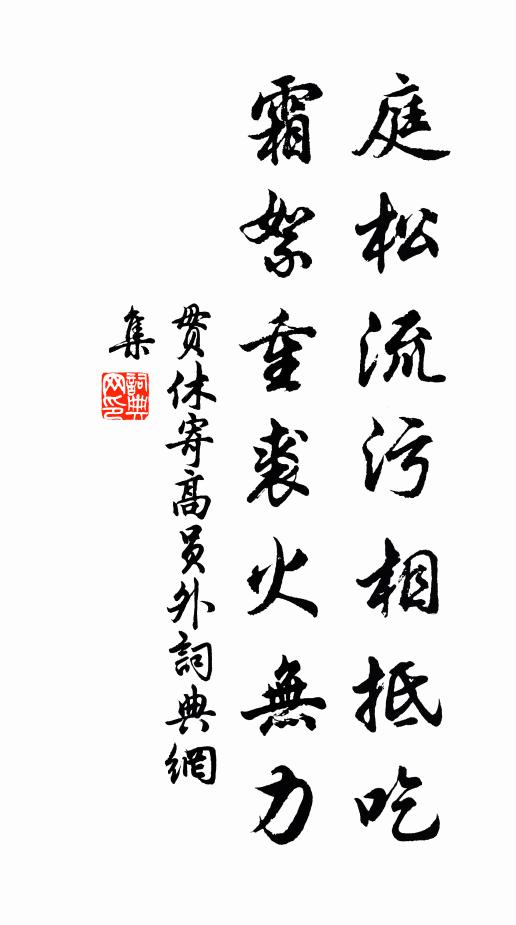 庭松流污相抵吃
霜絮重裘火無力
貫休寄高員外詞典網
集
詞典
网印